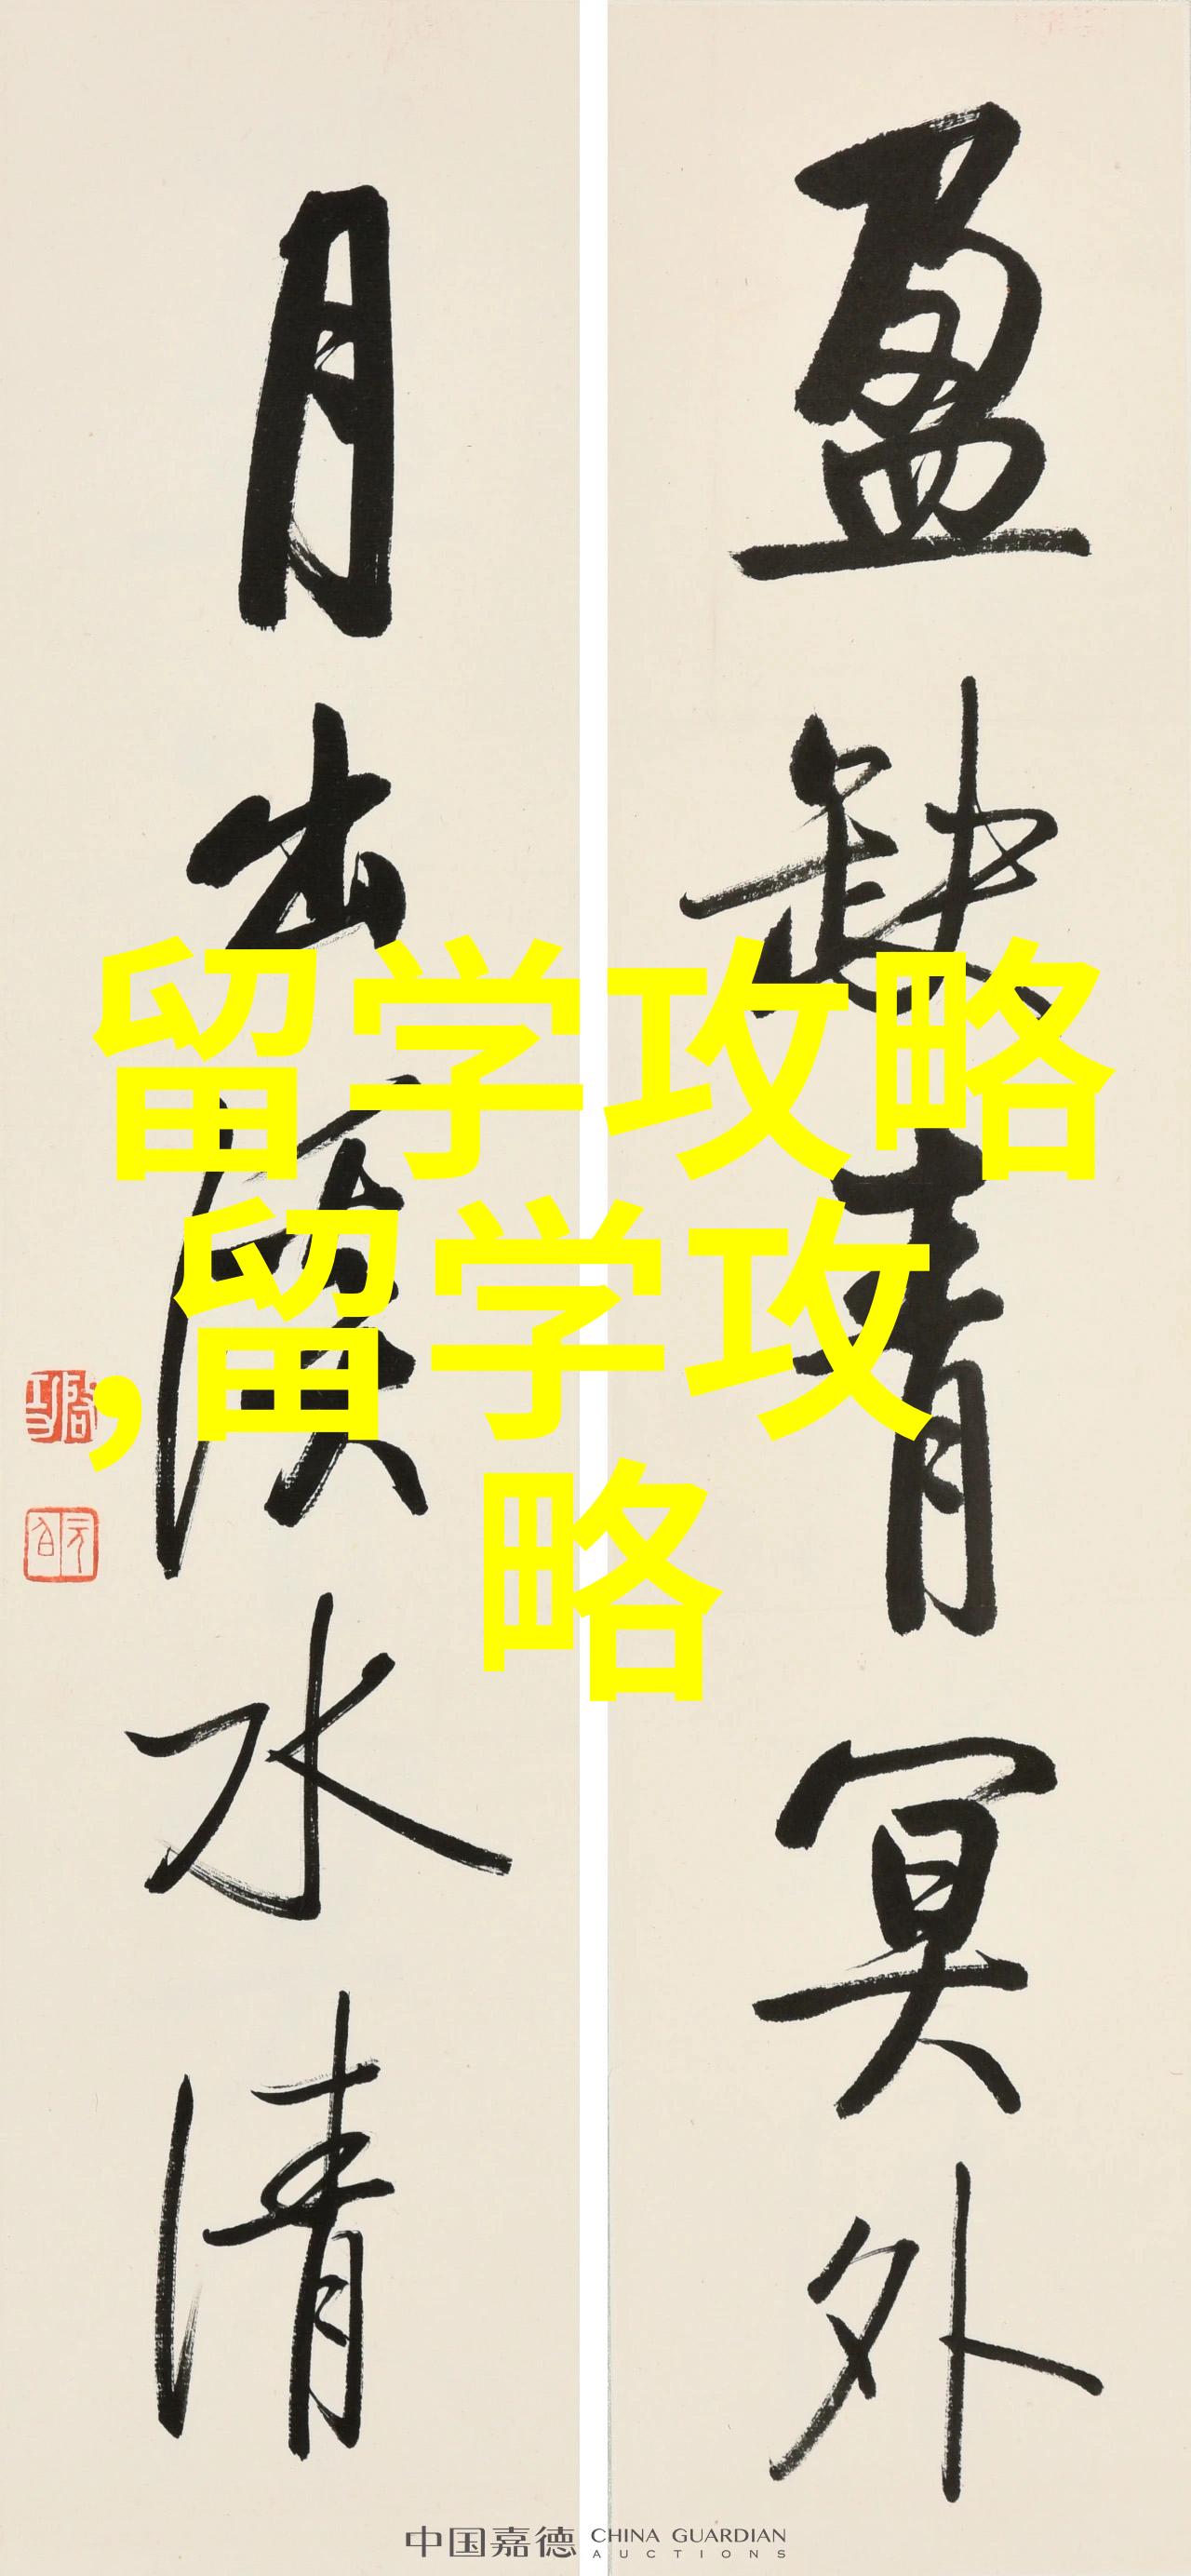 盈缺青冥外
月出溪水清
留学攻略
,留学攻
略
中国嘉德 CHINA GUARDIAN
AUCTIONS